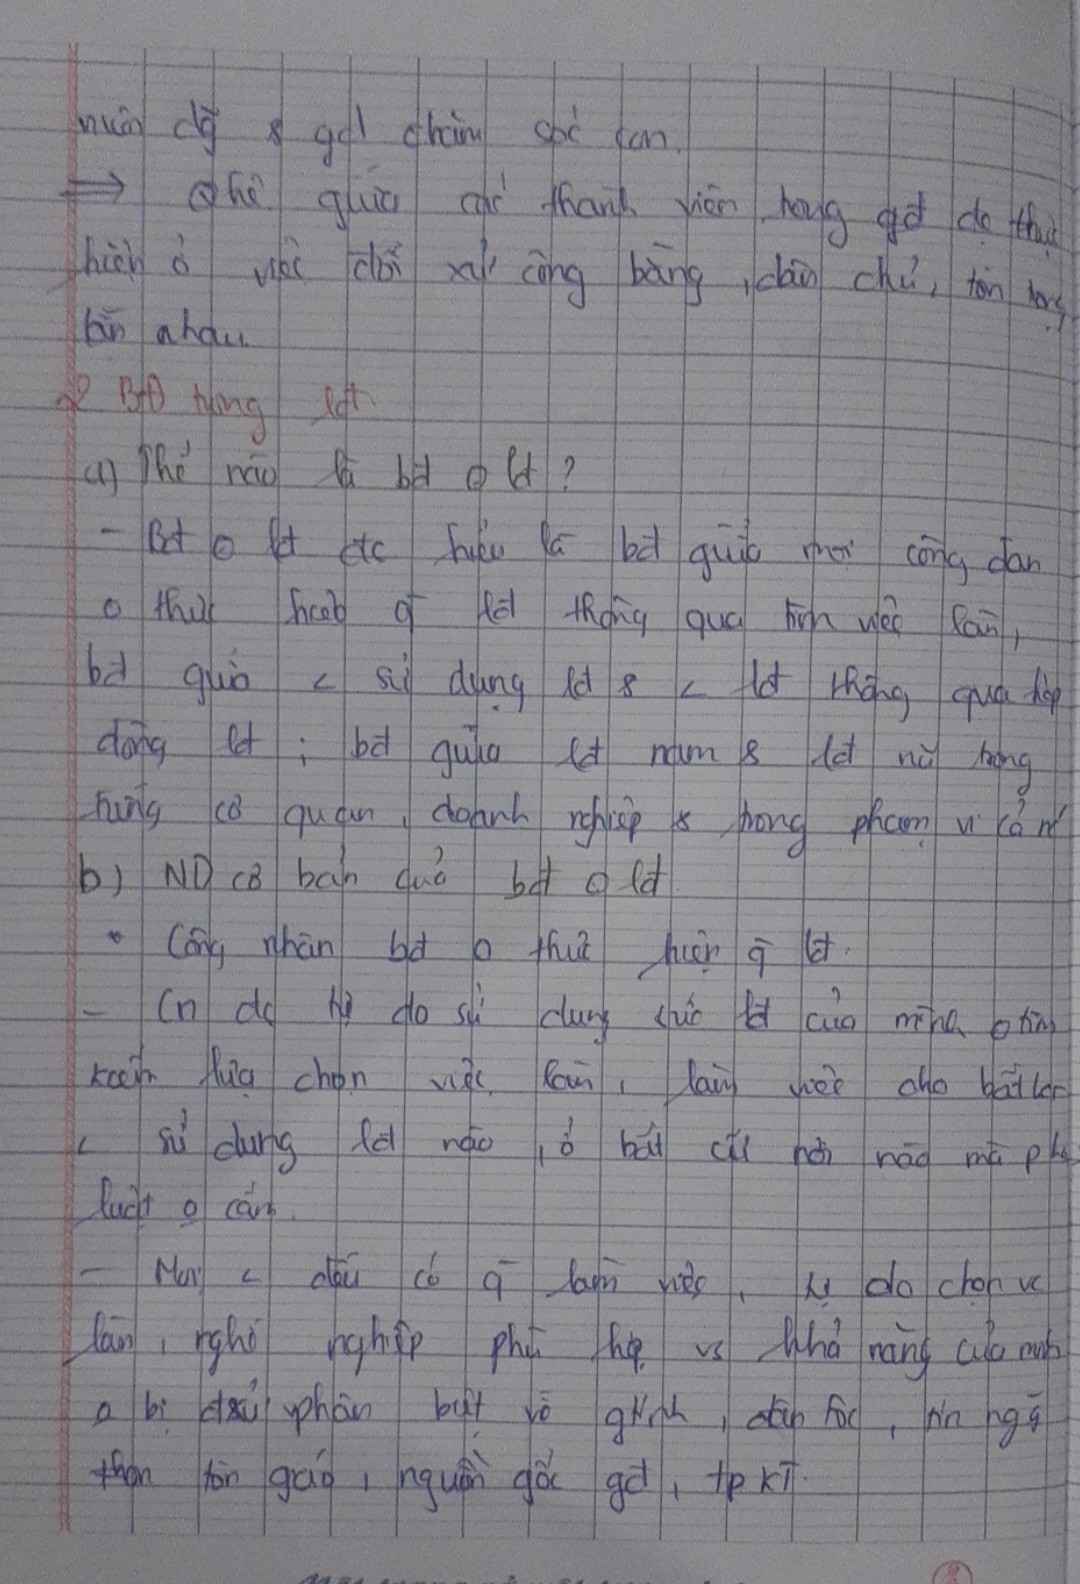 nuôi dg & gd chăm sóc con.
⇒ Qhệ giữa các thành viên trong gđ đc thực
hiện ở việc đối xử công bằng, dân chủ, tôn trọng
lẫn nhau
2 BĐ trong lđ
a) Thế nào là bđ o lđ?
- Bđ o lđ đc hiểu là bđ giữa mọi công dân
o thực hiện q lđ thông qua tìm việc làm,
bđ giữa < sử dụng lđ & < lđ thông qua hợp
đồng lđ; bđ giữa lđ nam & lđ nữ trong
từng cơ quan, doanh nghiệp & trong phạm vi cả n'
b) ND cơ bản của bđ o lđ
* Công nhân bđ o thực hiện q lđ.
- Cn đc tự do sử dụng sức lđ của mình o tìm
kiếm lựa chọn việc làm, làm việc cho bất
< sử dụng lđ nào, ở bất cứ nơi nào mà
luật o cấm.
- Mọi < đều có q làm việc, tự do chọn vc
làm, nghề nghiệp phù hợp vs khả năng của mình
o bị phân biệt về gtính, dân tộc, tín ngg
tôn giáo, nguồn gốc gđ, tp KT.